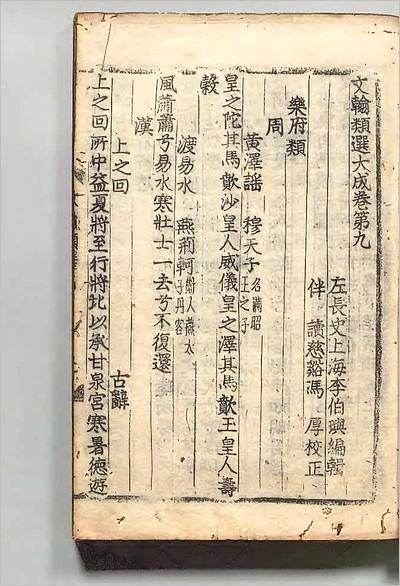 文翰類選大成卷第九
左長史上海李伯璵編輯
伴讀慈谿馮厚校正
樂府類
周
黃澤謠 穆天子 名滿昭王之子
皇之陀其馬歕沙皇人威儀皇之澤其馬歕玉皇人壽
穀
渡易水 燕荊軻 衛人燕太子丹客
風蕭蕭兮易水寒壯士一去兮不復還
漢
上之回 古辭
上之回所中益夏將至行將北以承甘泉宮寒暑德遊